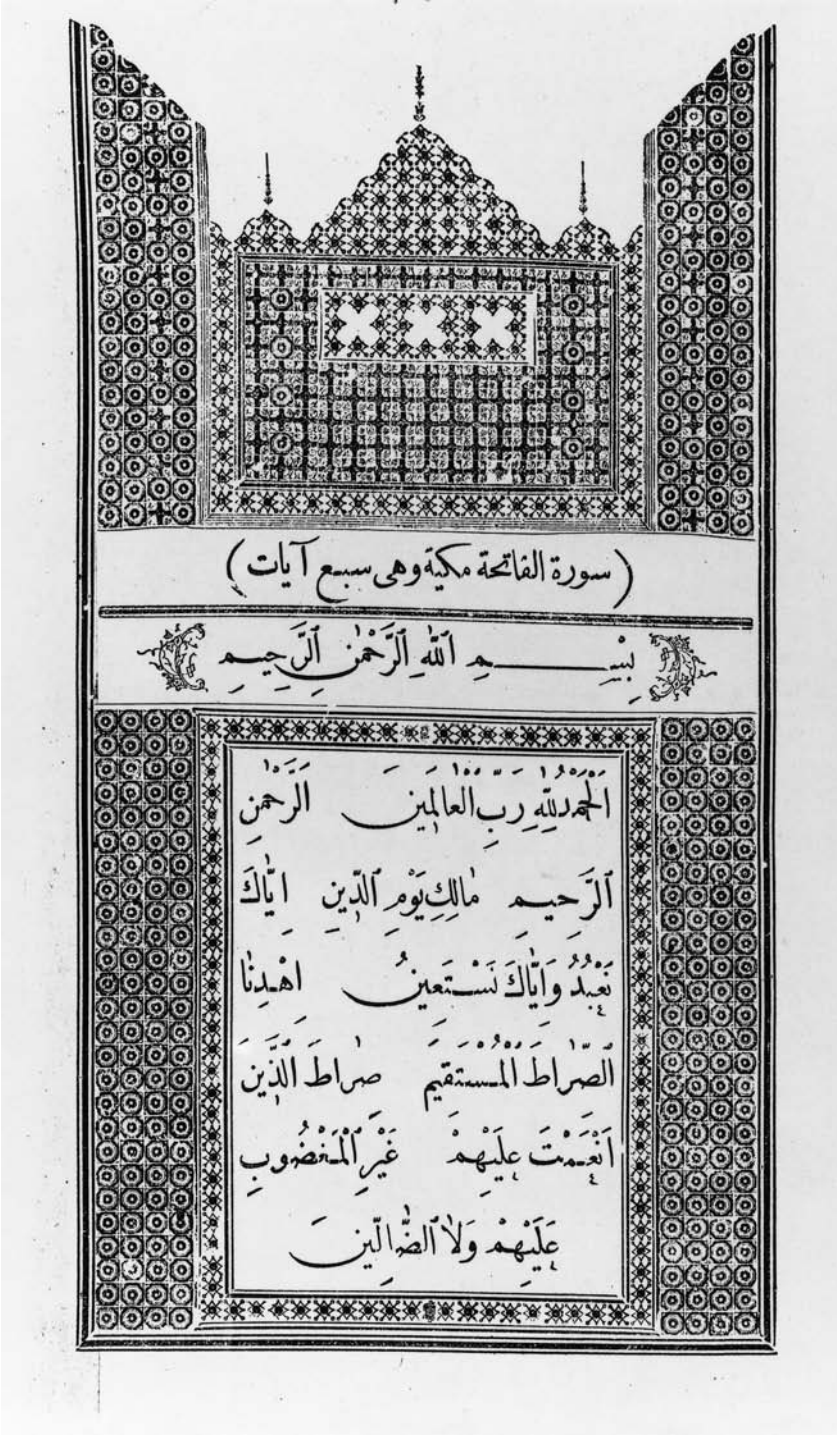 (سورة الفاتحة مكية وهى سبع آيات)
بِسْـــــمِ اللّٰهِ الرَّحْمٰنِ الرَّحِيمِ
اَلْحَمْدُ لِلّٰهِ رَبِّ الْعَالَمِينَ اَلرَّحْمٰنِ
الرَّحِيمِ مٰالِكِ يَوْمِ الدِّينِ اِيّٰاكَ
نَعْبُدُ وَاِيّٰاكَ نَسْتَعِينُ اِهْدِنٰا
الصِّرٰاطَ الْمُسْتَقِيمَ صِرٰاطَ الَّذِينَ
اَنْعَمْتَ عَلَيْهِمْ غَيْرِ الْمَغْضُوبِ
عَلَيْهِمْ وَلٰا الضّٰالِّينَ